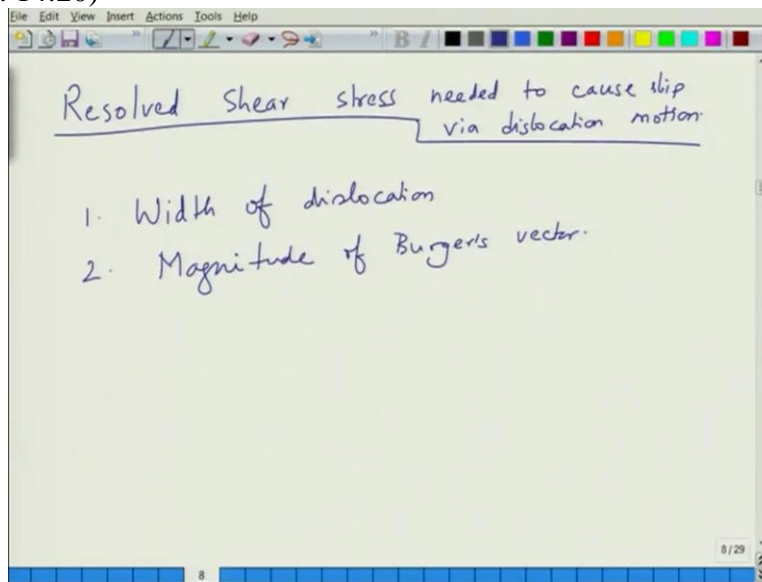 File Edit View Insert Actions Tools Help
Resolved Shear stress needed to cause slip
via dislocation motion.
1. Width of dislocation
2. Magnitude of Burger's vector.
8/29
8